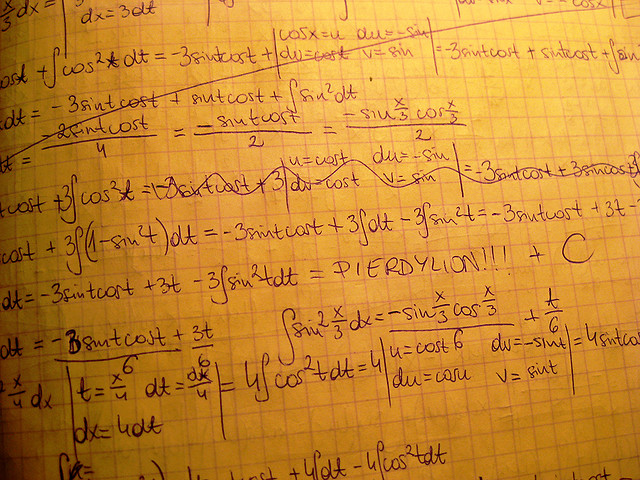 dx = 3dt
cosx=u du=-sin
+ ∫cos²t dt = -3sintcost + | dv=cost v=sin | = -3sintcost + sintcost + ∫sin
dt = -3sintcost + sintcost + ∫sin²dt
= -2sintcost / 4 = -sintcost / 2 = -sin x/3 cos x/3 / 2
u=cost du=-sin
tcost + 3∫cos²t = -3sintcost + 3 | dv=cost v=sin | = -3sintcost + 3sincost + 3∫
cost + 3∫(1-sin²t)dt = -3sintcost + 3∫dt - 3∫sin²t = -3sintcost + 3t -
dt = -3sintcost + 3t - 3∫sin²tdt = PIERDYLION!!! + C
dt = -3sintcost + 3t / 6 ∫sin² x/3 dx = -sin x/3 cos x/3 / 6 + t/6
x/4 dx | t = x/4 dt = dx/4 | = 4∫cos²tdt = 4 | u=cost dv=-sint | = 4sintcos
dx = 4dt du=cosu v=sint
+ 4∫dt - 4∫cos²tdt